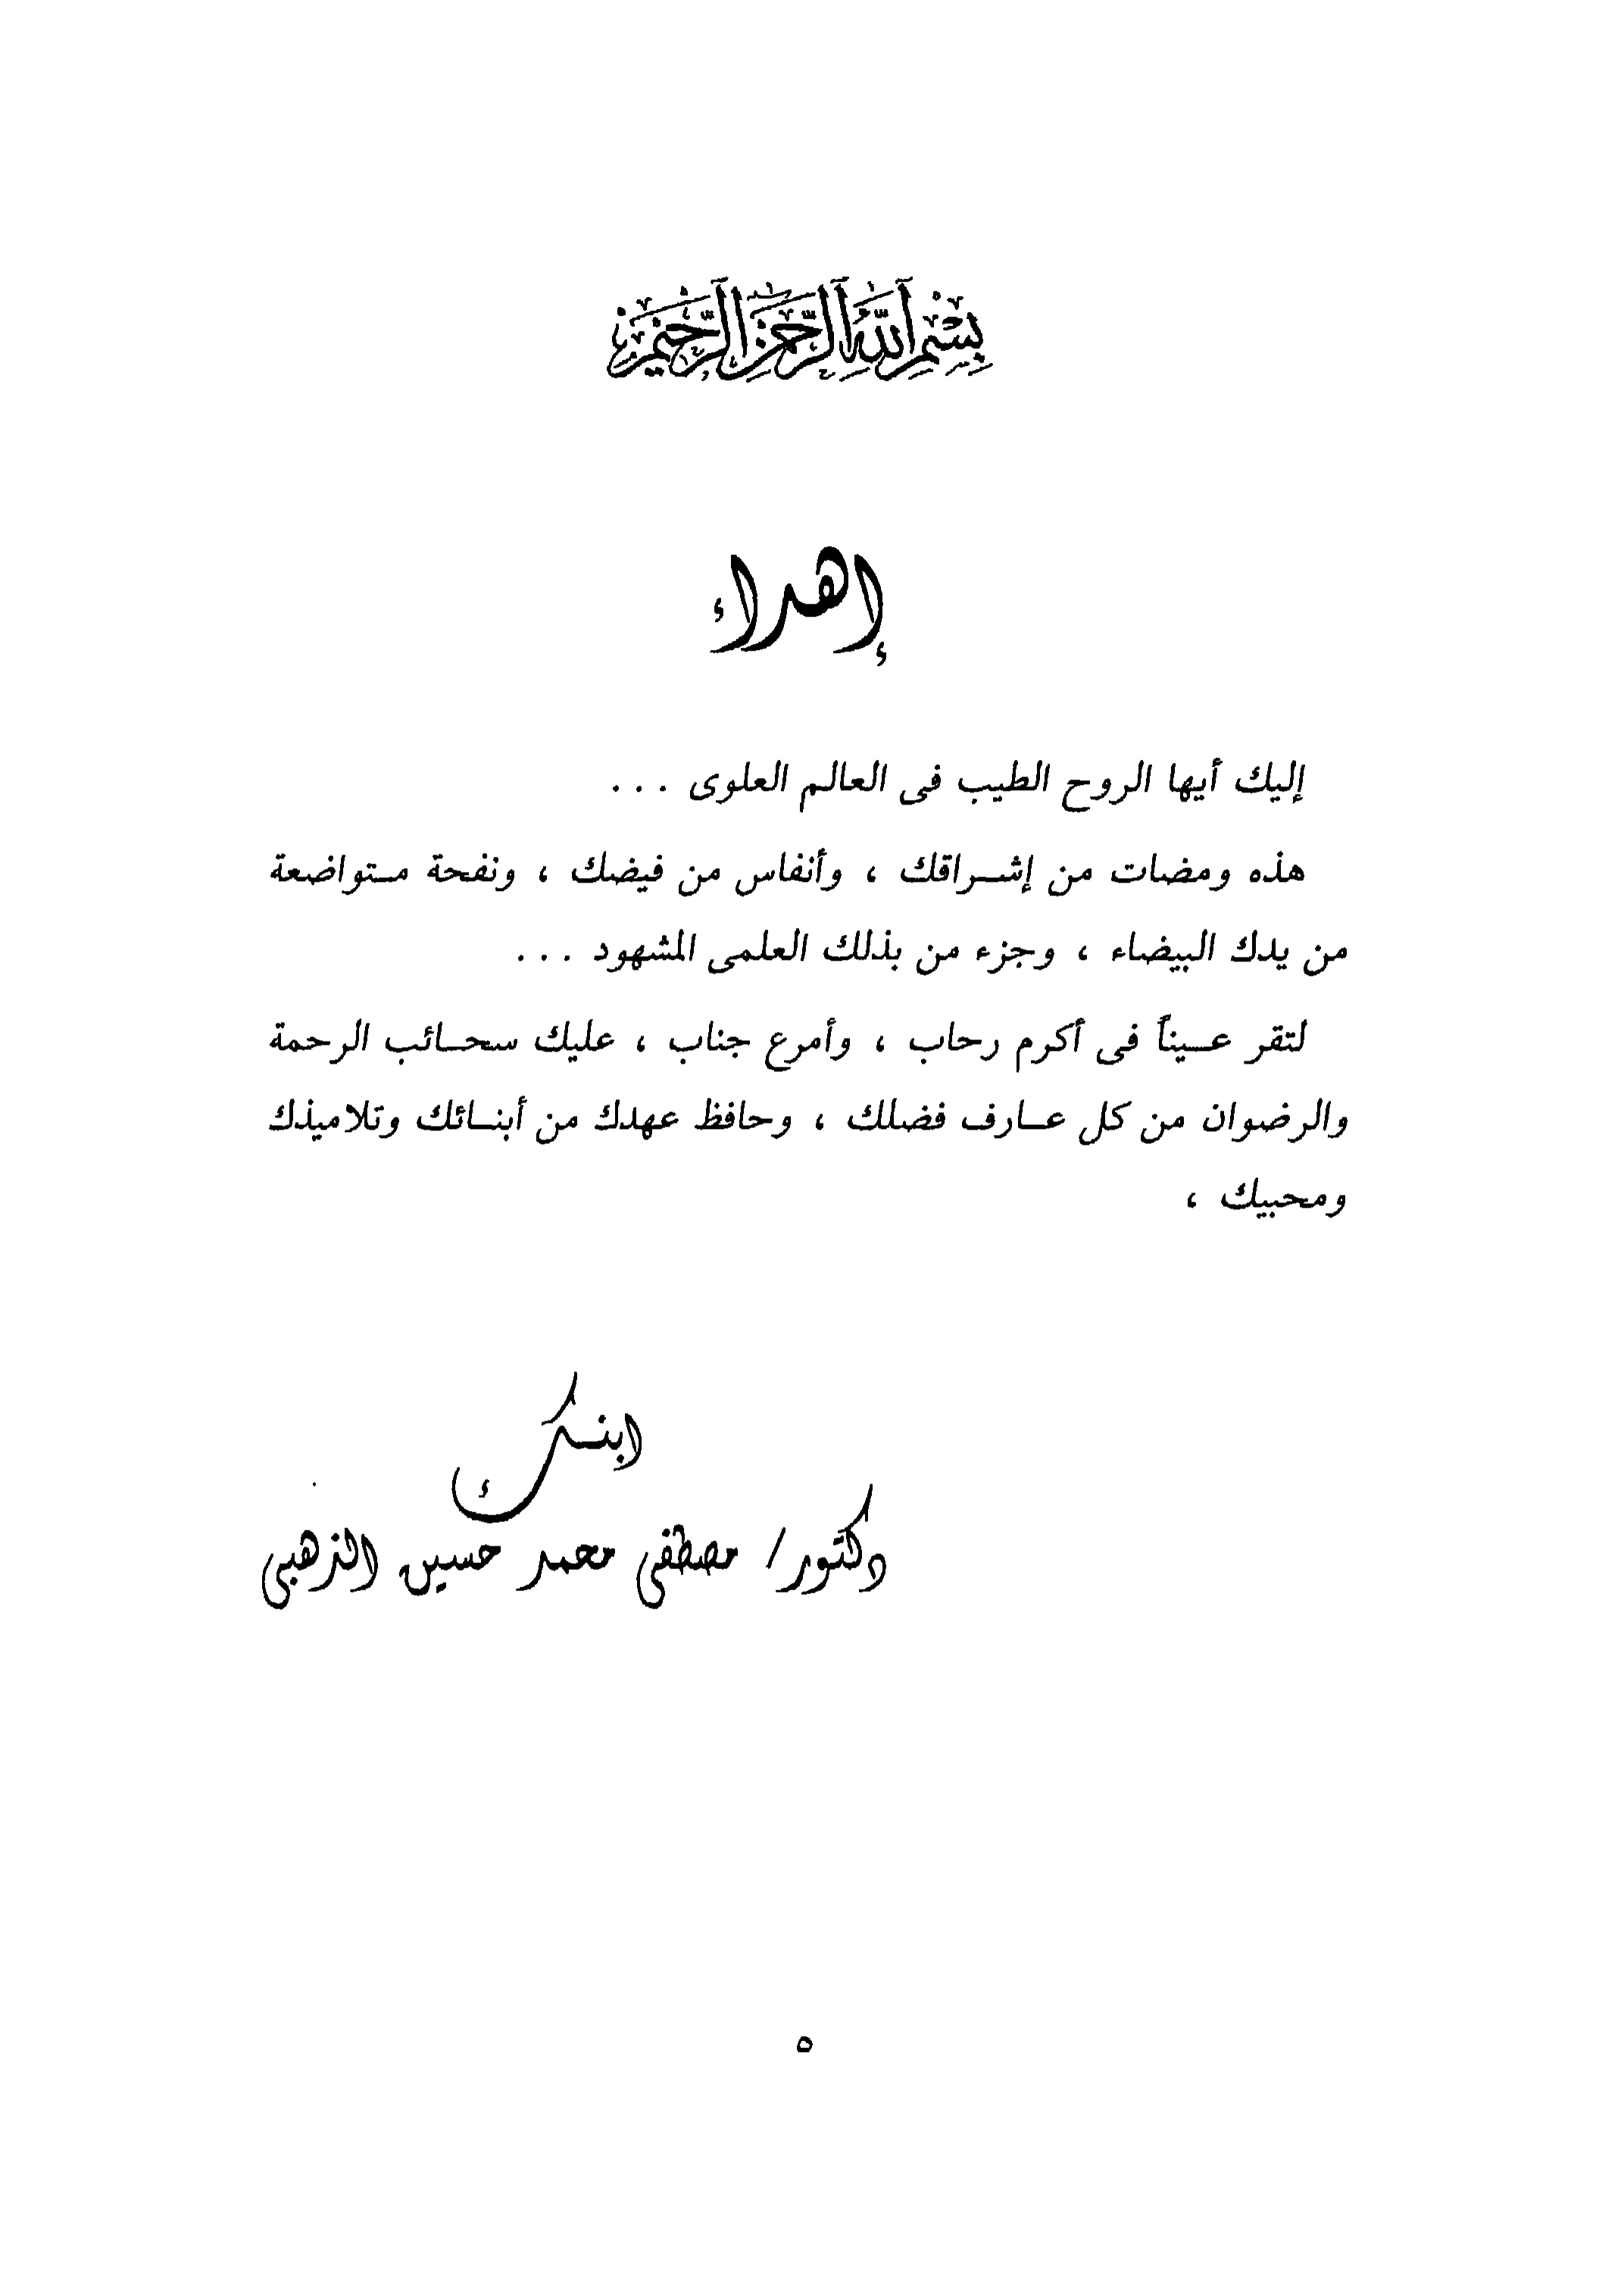 بِسْمِ اللَّهِ الرَّحْمَٰنِ الرَّحِيمِ
إهداء
إليك أيها الروح الطيب فى العالم العلوى . . .
هذه ومضات من إشراقك ، وأنفاس من فيضك ، ونفحة متواضعة
من يدك البيضاء ، وجزء من بذلك العلمى المشهود . . .
لتقر عيناً فى أكرم رحاب ، وأمرع جناب ، عليك سحائب الرحمة
والرضوان من كل عارف فضلك ، وحافظ عهدك من أبنائك وتلاميذك
ومحبيك ،
ابنك
دكتور/ مصطفى محمد حسين الذهبى
٥